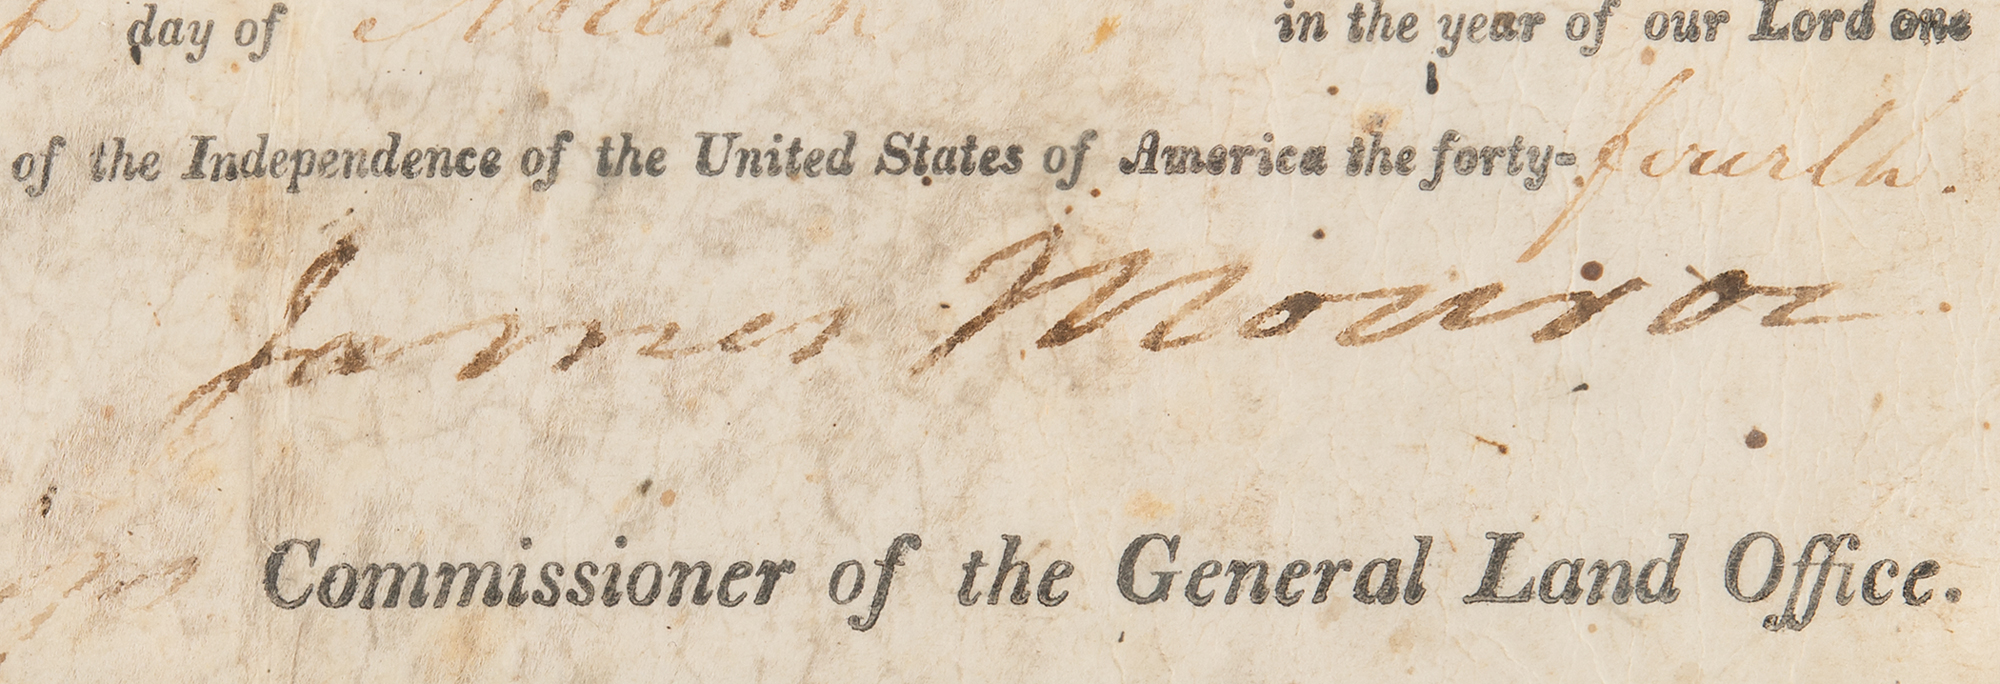 day of March in the year of our Lord one
of the Independence of the United States of America the forty-fourth.
James Monroe
Commissioner of the General Land Office.